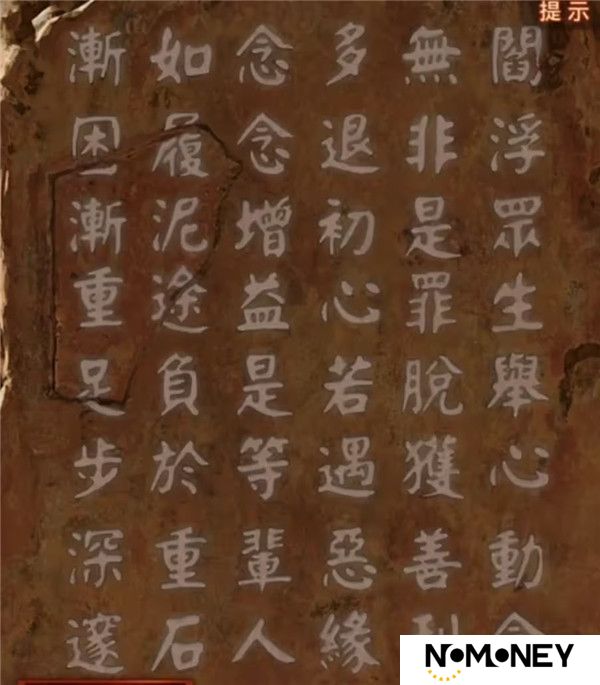 提示
閻浮眾生舉心動
無非是罪脫獲善
多退初心若遇惡緣
念念增益是等輩人
如履泥途負於重石
漸困漸重足步深邃
NOMONEY